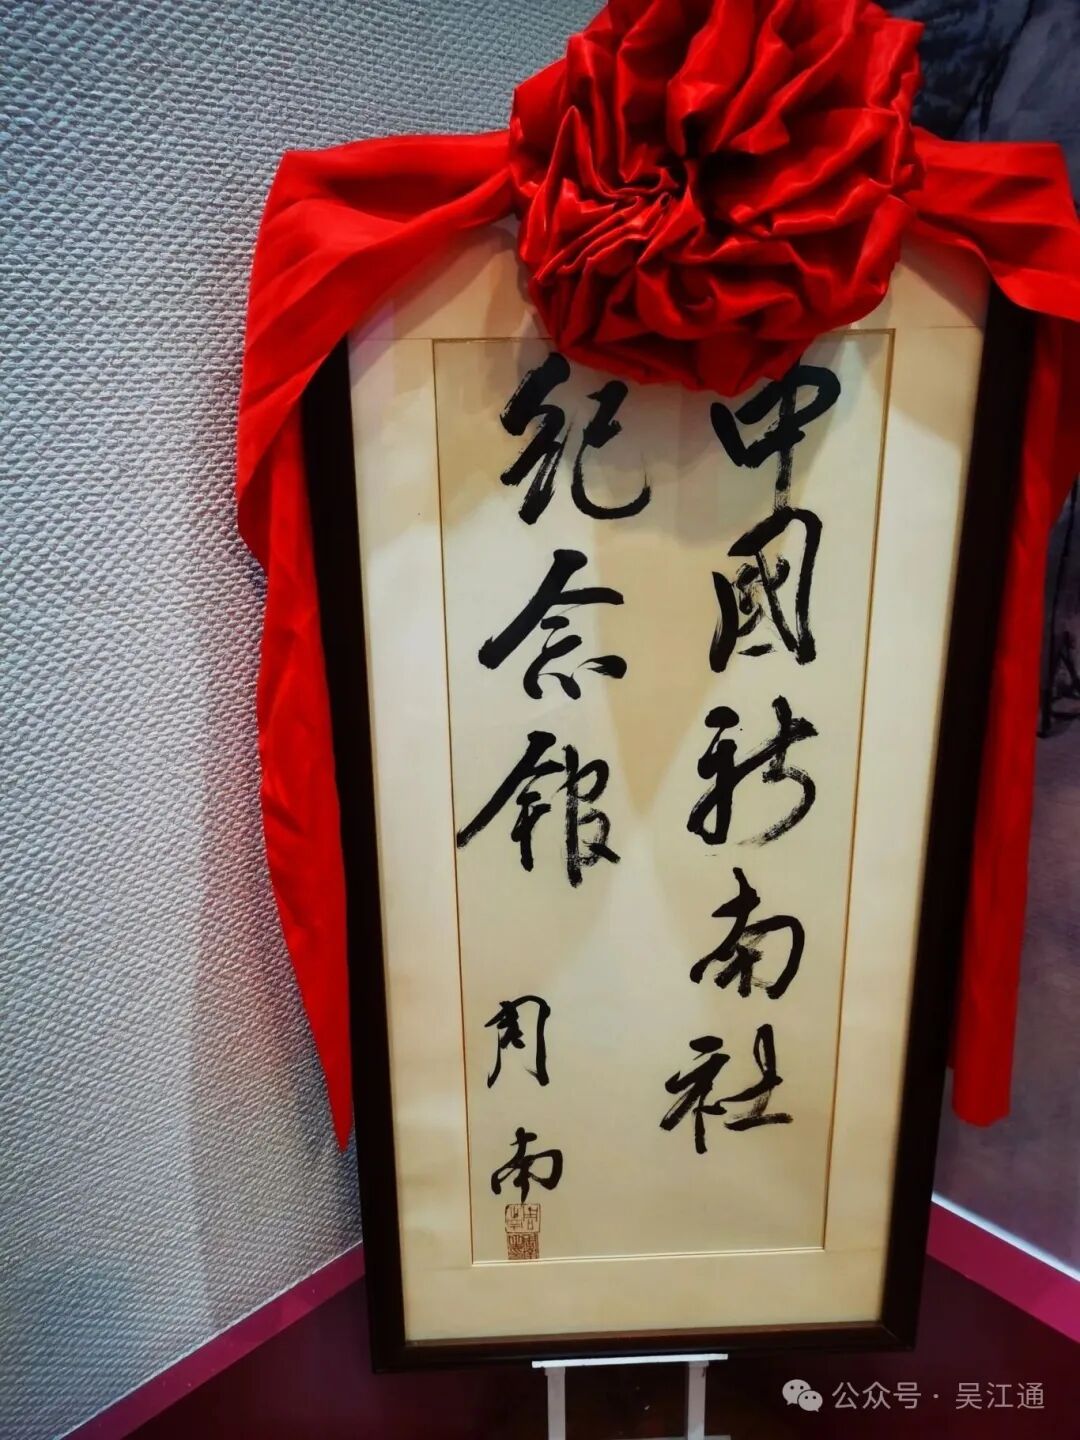 中國新南社
紀念館
周南
公众号·吴江通